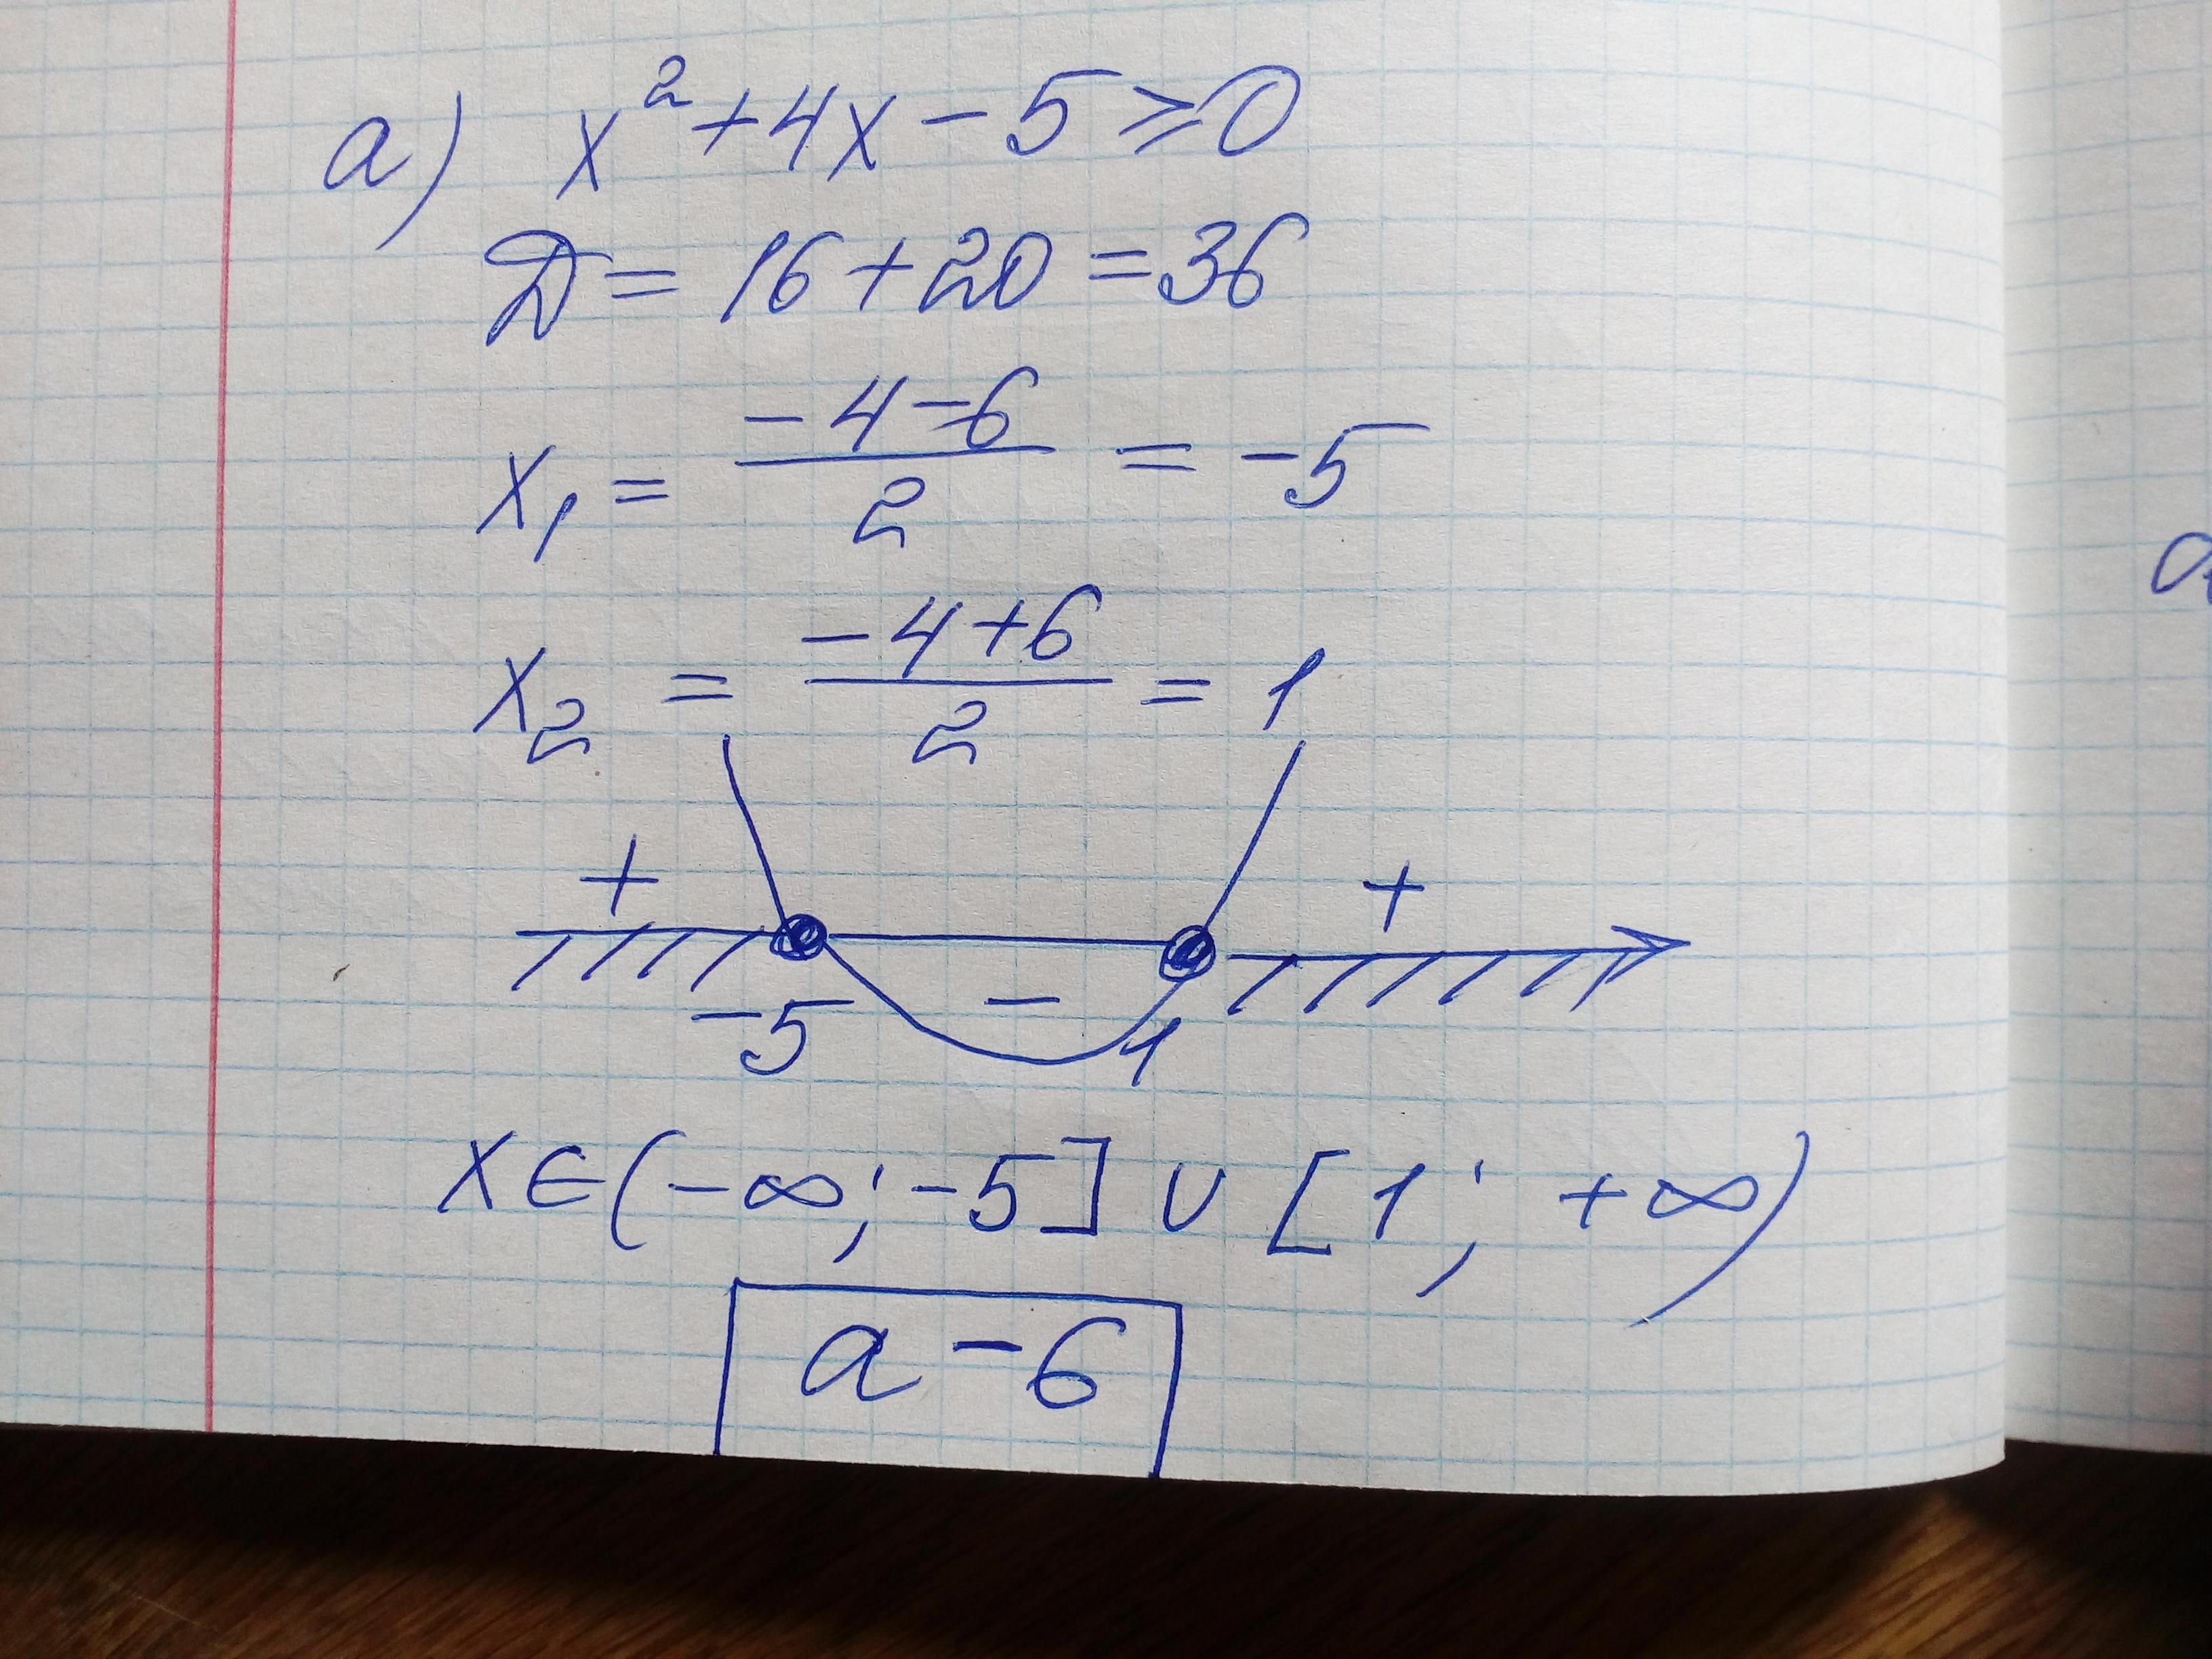 а) x² + 4x - 5 ⩾ 0
D = 16 + 20 = 36
x₁ = (-4 - 6)/2 = -5
x₂ = (-4 + 6)/2 = 1
+ +
-5 - 1
x ∈ (-∞; -5] ∪ [1; +∞)
а - 6